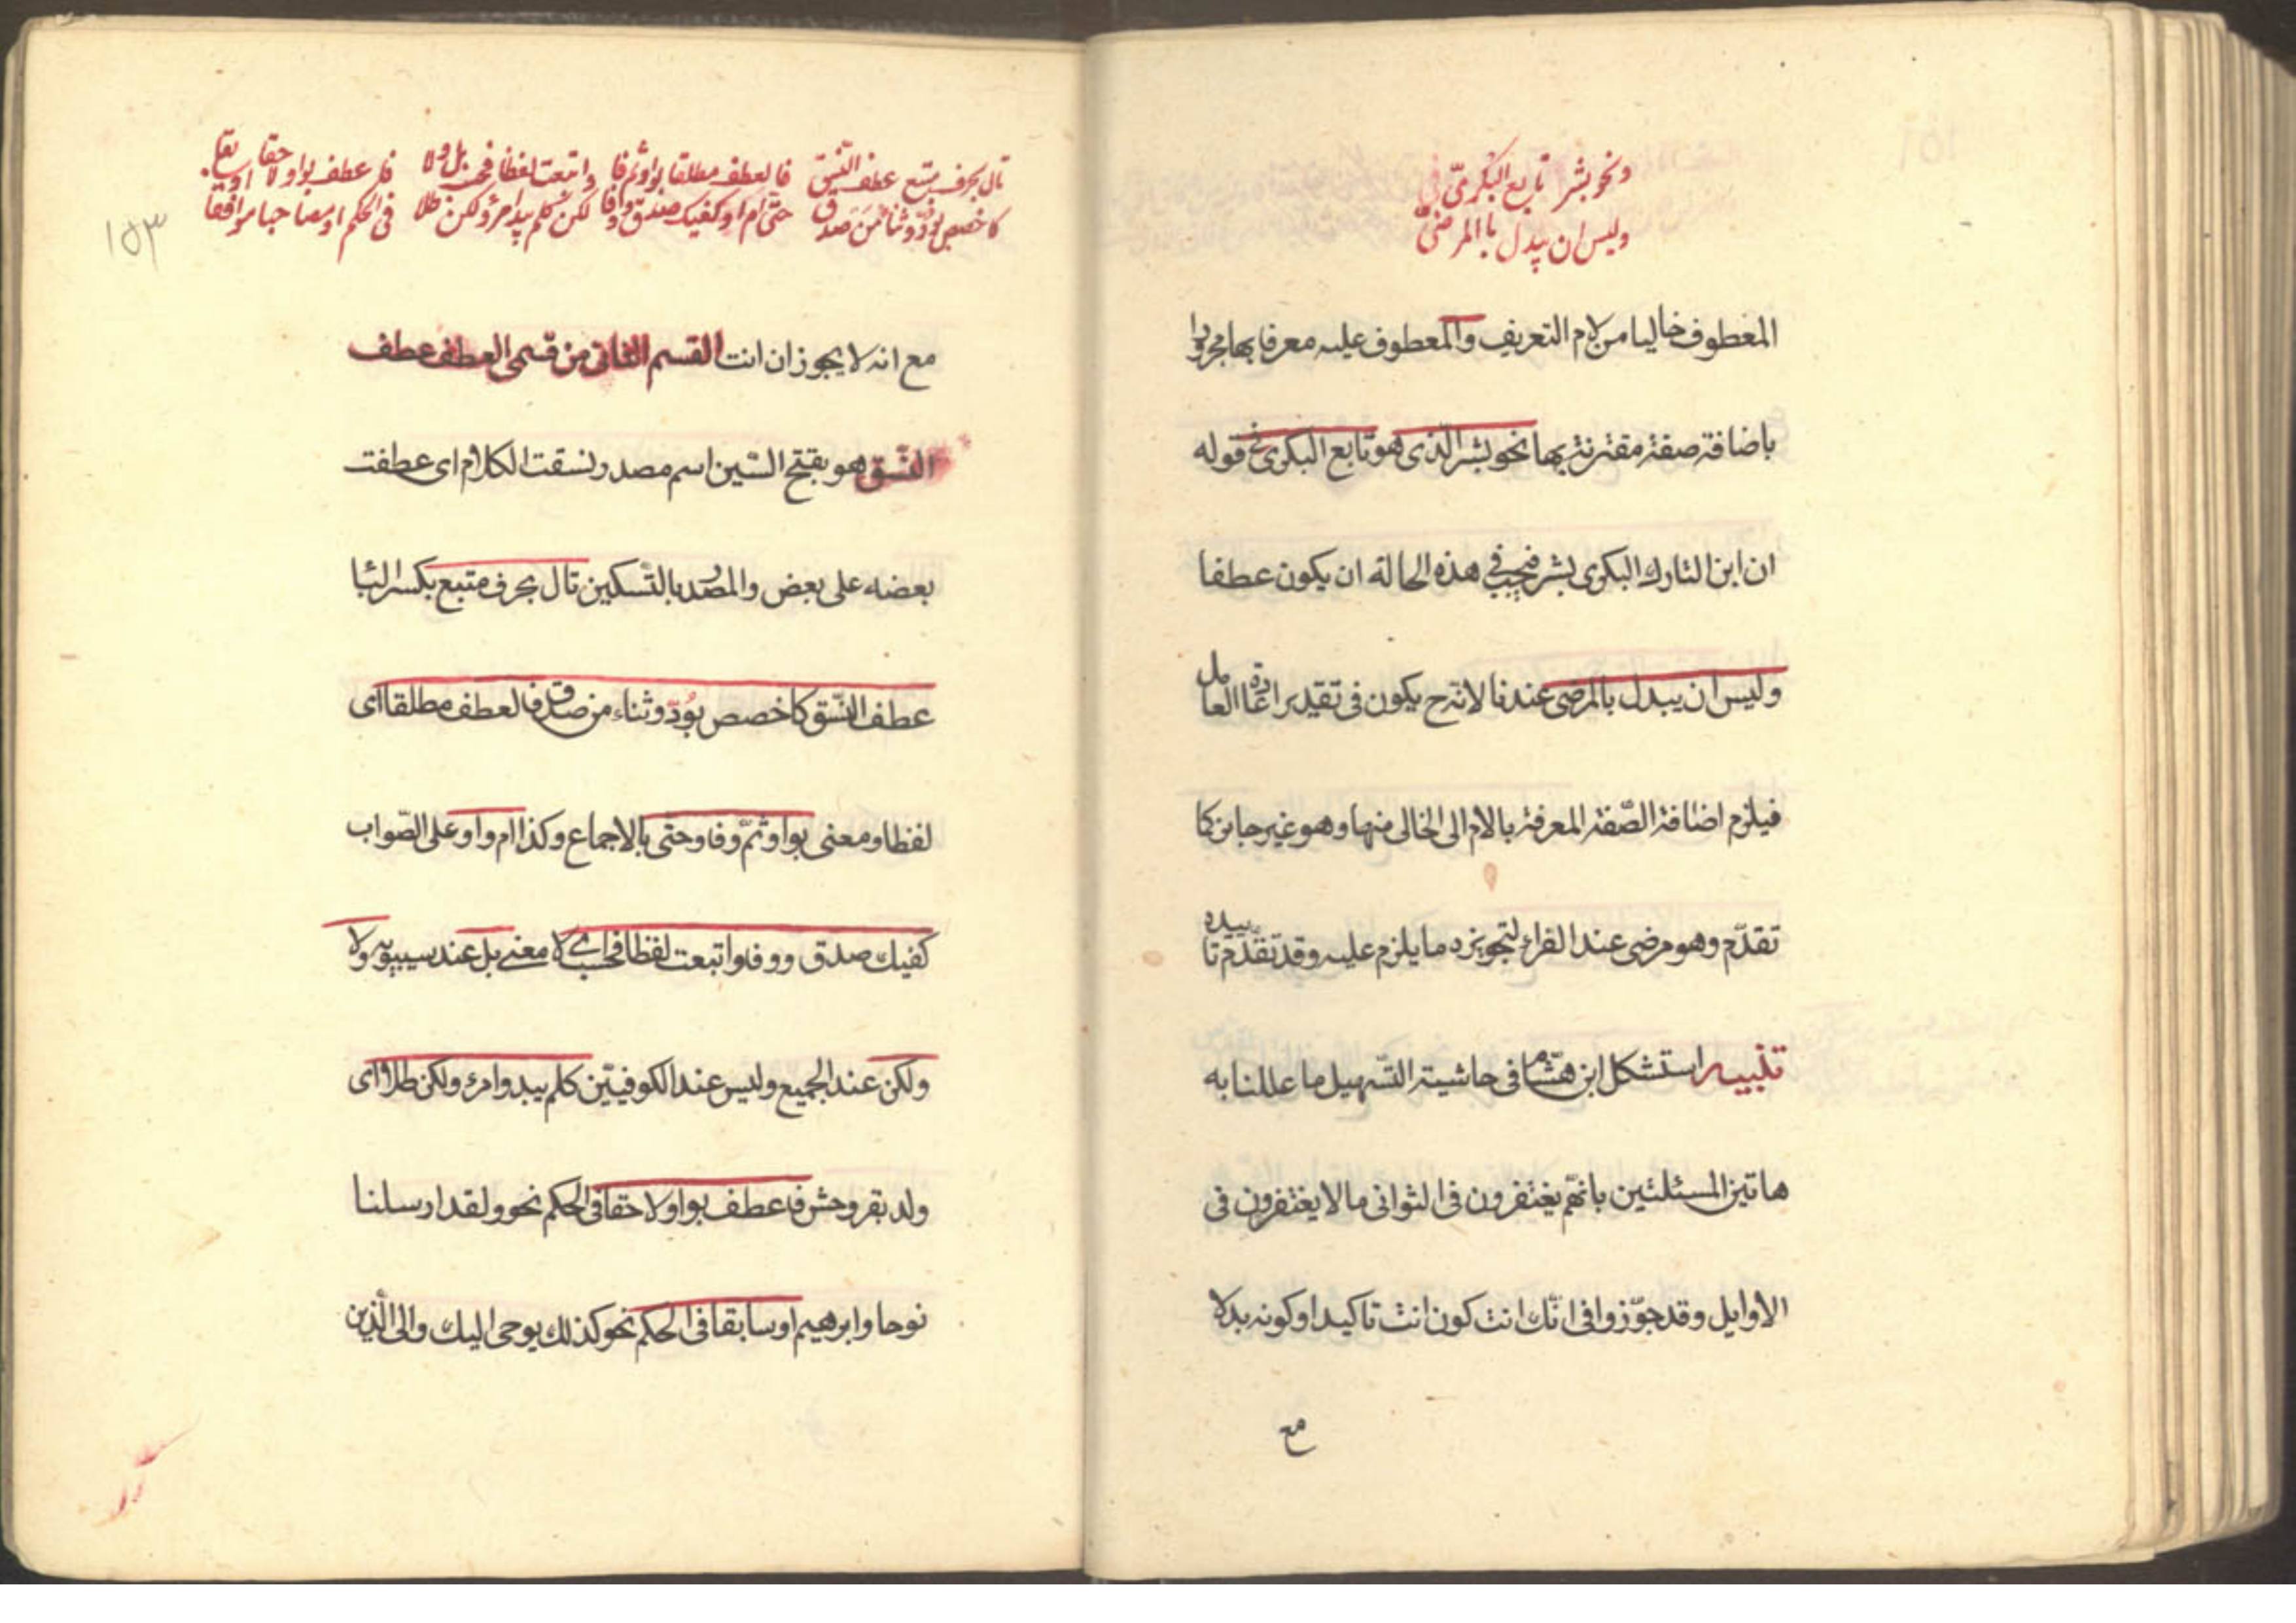 ونحو بشر تابع البكرىّ فى
وليس ان يبدل بالمرضىّ
المعطوف خاليا من لام التعريف والمعطوف عليه معرفا بها مجرورا
باضافة صفة مقترنة بها نحو بشر الذى هو تابع البكرى فى قوله
ان ابن التارك البكرى بشر فيجب فى هذه الحالة ان يكون عطفا
وليس ان يبدل بالمرضى عندنا لانّه ح يكون فى تقدير اعادة العامل
فيلزم اضافة الصّفة المعرفة بالام الى الخالى منها وهو غير جايز كما
تقدّم وهو مرضى عند الفراء لتجويزه ما يلزم عليه وقد تقدّم تاييده
تنبيه استشكل ابن هشام فى حاشية التّسهيل ما عللنا به
هاتين المسئلتين بانهّم يغتفرون فى الثوانى ما لا يغتفرون فى
الاوايل وقد جوّزوا فى انّك انت كون انت تاكيدا وكونه بدلا
مع
تال بحرف متبع عطف النّسق فالعطف مطلقا بواو ثم فا واتبعت لفظا فحسب بل ولا فاعطف بواو لاحقا او سابقا
كاخصص بودّ وثناء من صدق حتّى ام او كفيك صدق ووفا لكن كلم يبد امرؤ لكن طلا فى الحكم او مصاحبا موافقا
١٥٣
مع انه لا يجوز ان انت القسم الثانى من قسمى العطف عطف
النّسق هو بفتح السّين اسم مصدر نسقت الكلام اى عطفت
بعضه على بعض والمصدر بالتّسكين تال بحرف متبع بكسر البا
عطف النّسق كاخصص بودّ وثناء من صدق فالعطف مطلقا اى
لفظا ومعنى بواو وثمّ وفا وحتّى بالاجماع وكذا ام واو على الصّواب
كفيك صدق ووفا واتبعت لفظا فحسب اى لا معنى بل عند سيبويه ولا
ولكن عند الجميع وليس عند الكوفيّين كلم يبد وامرؤ ولكن طلا اى
ولد بقر وحش فاعطف بواو لاحقا فى الحكم نحو ولقد ارسلنا
نوحا وابرهيم او سابقا فى الحكم نحو كذلك يوحى اليك والى الّذين